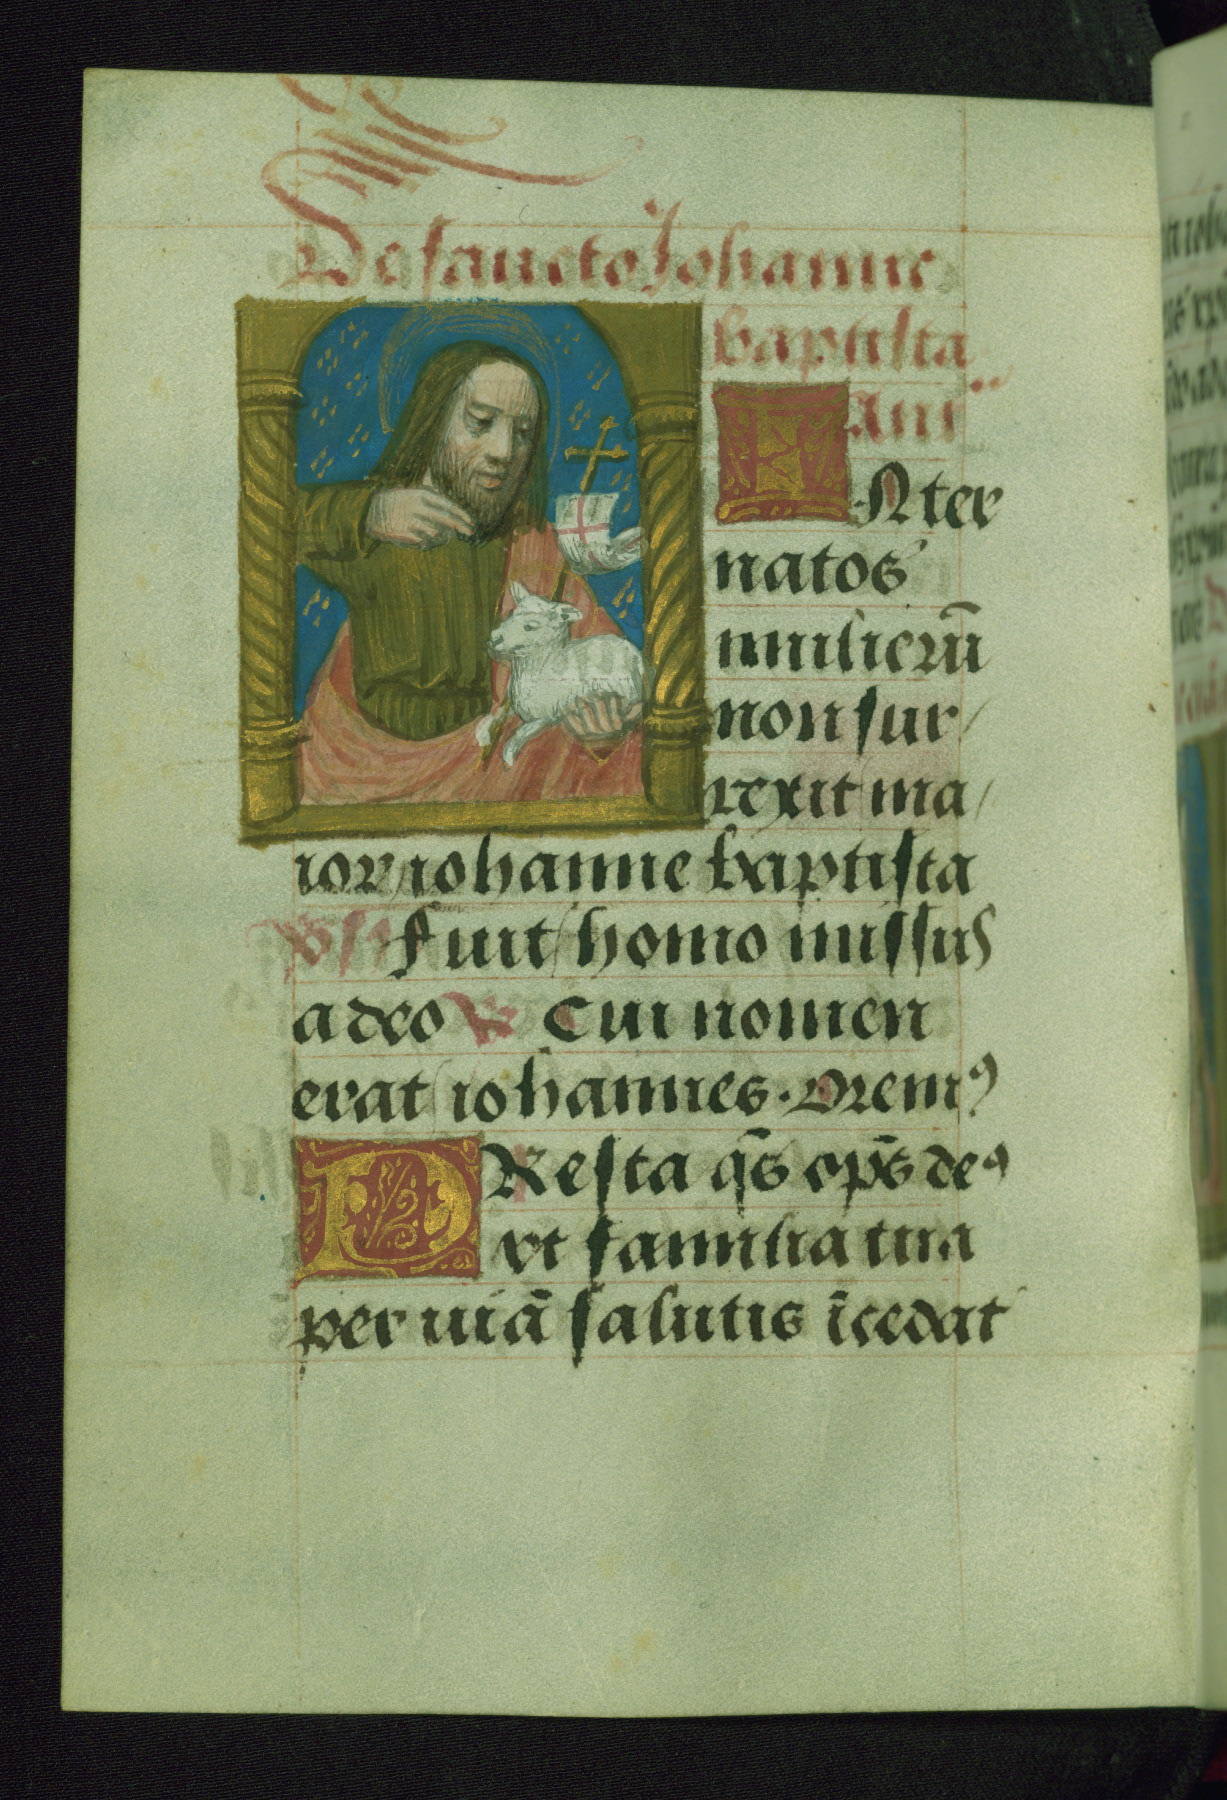 De sancto Johanne
baptista
Añ
INter
natos
mulierū
non sur/
rexit ma/
ior iohanne baptista
v̄s fuit homo missus
a deo R Cui nomen
erat iohannes. Orem⁹
PResta q̄s op̄s de⁹
vt familia tua
per uiā salutis īcedat